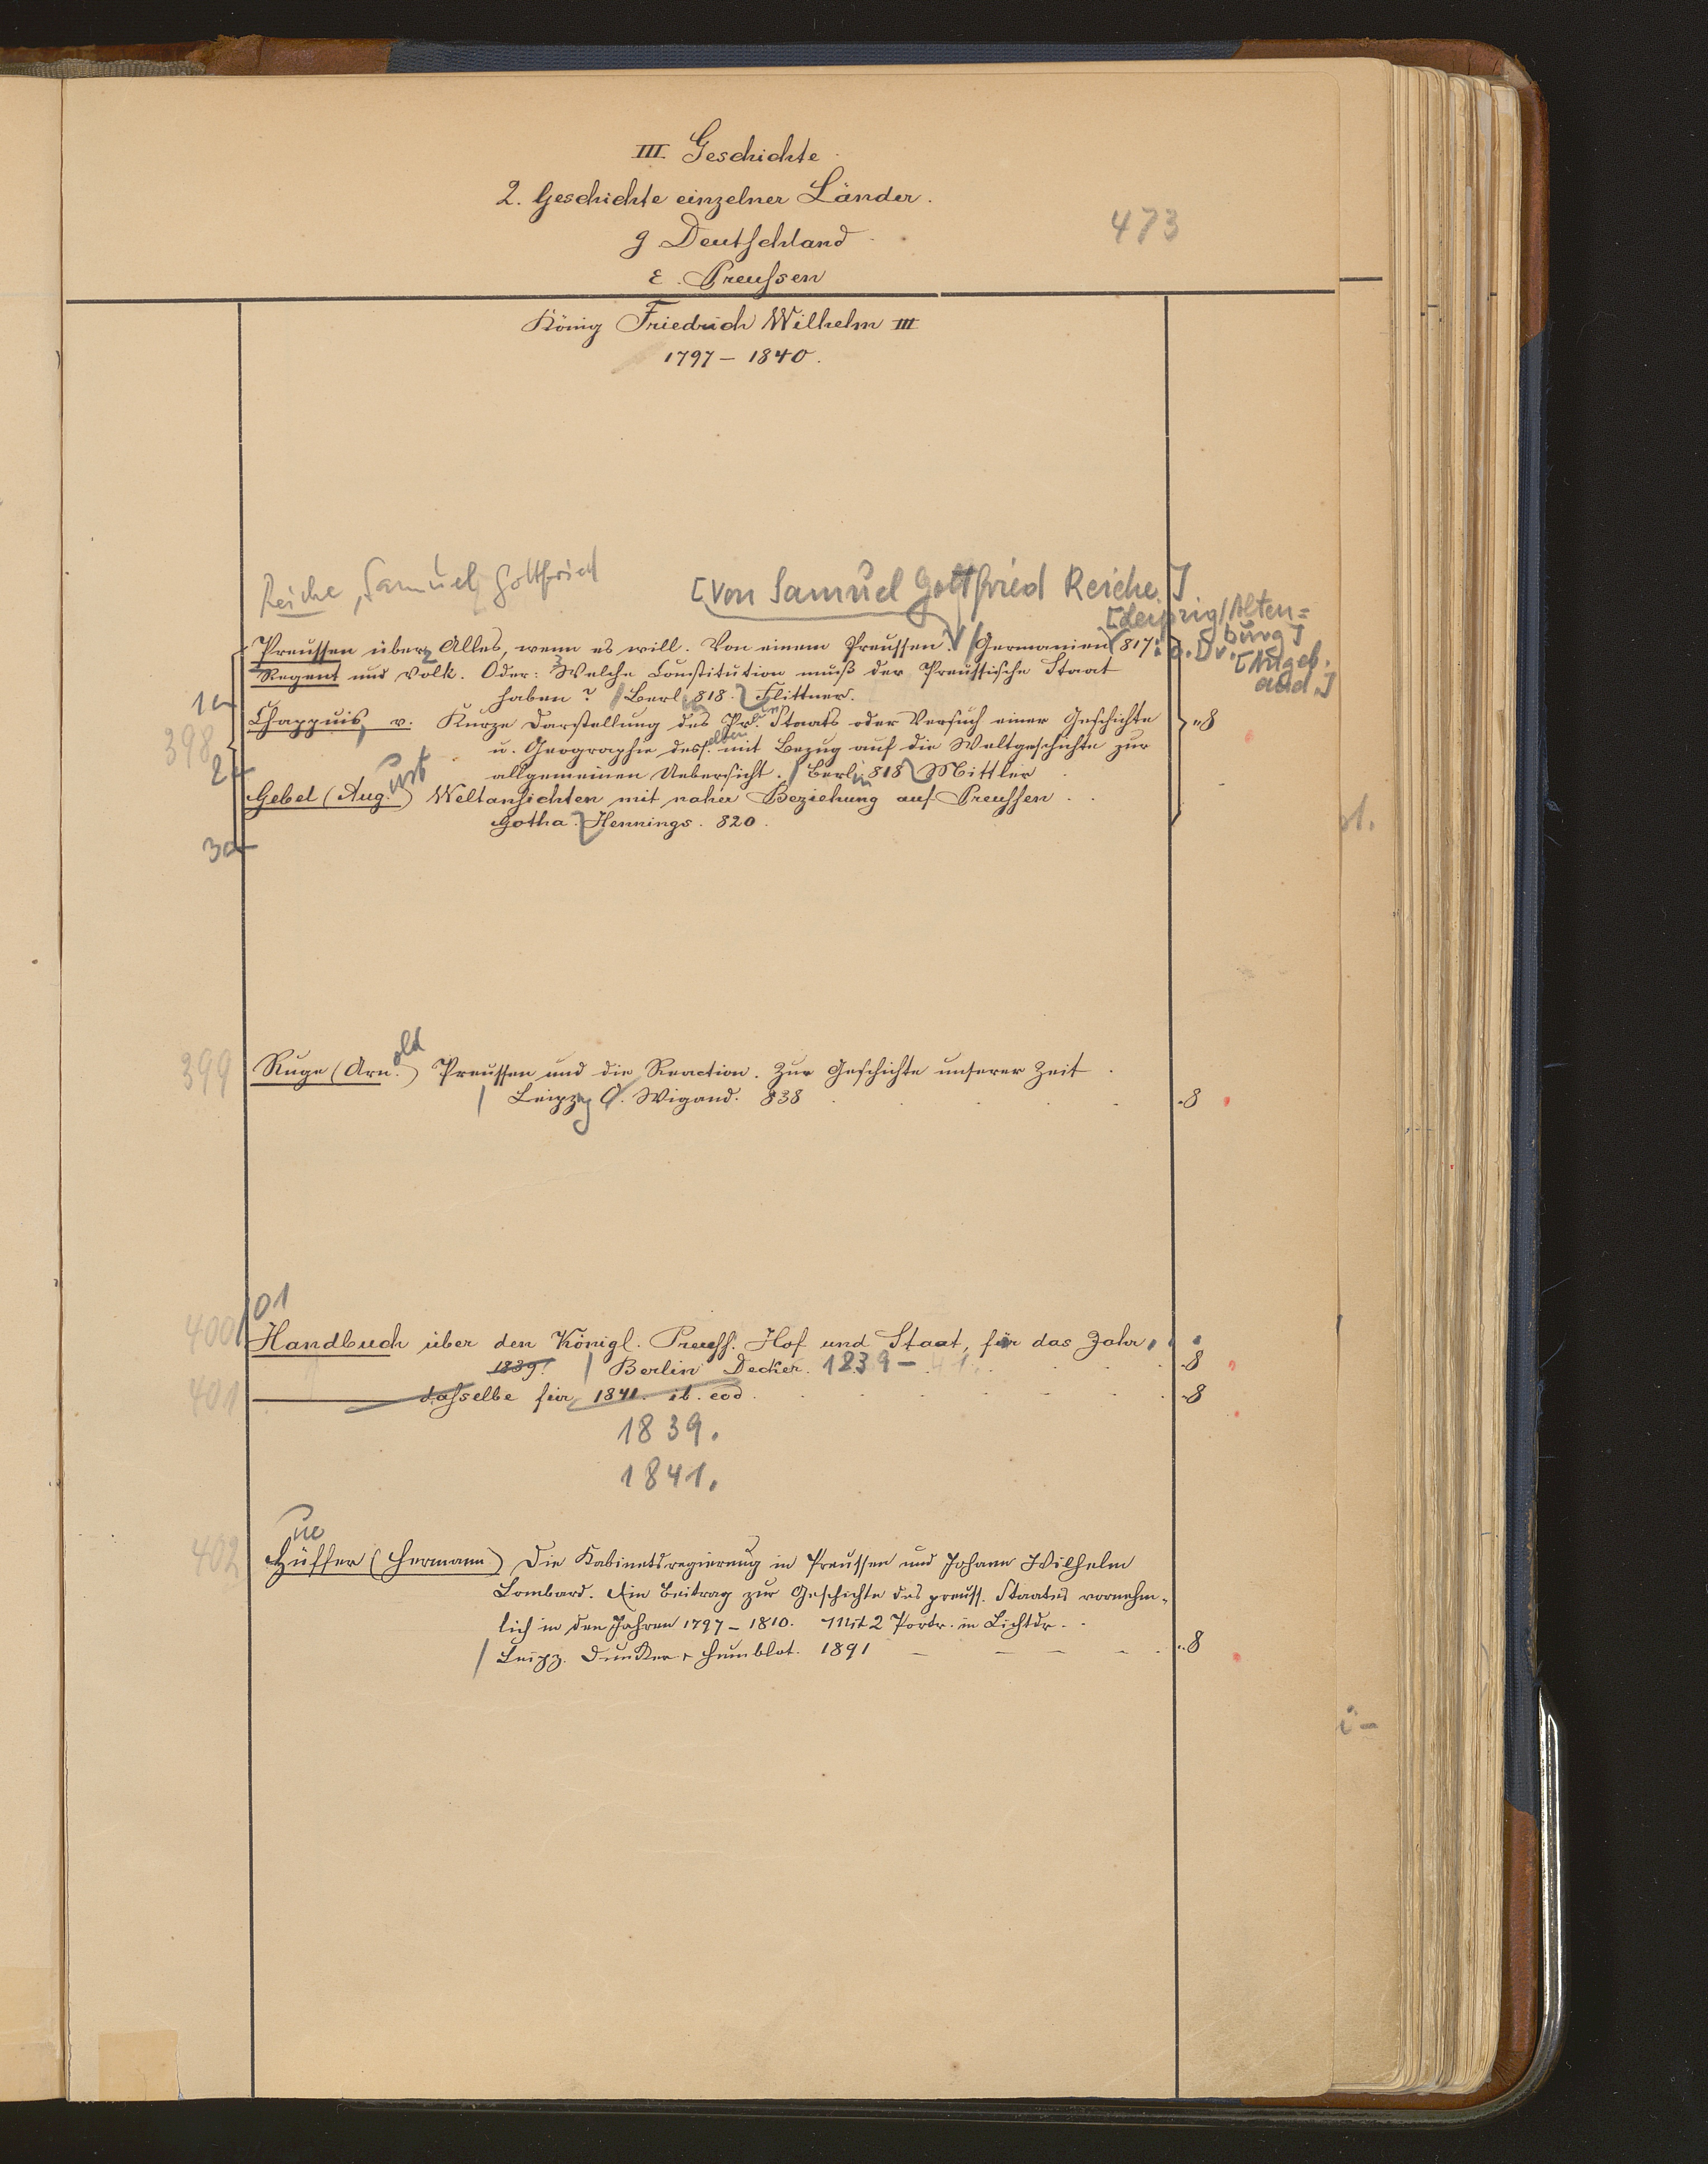 III. Geschichte
2. Geschichte einzelner Länder.
g Deutschland
473
ε. Preussen
König Friedrich Wilhelm III
1797 – 1840.
Reiche, Samuel Gottfried
[von Samuel Gottfried Reiche.]
[Leipzig/Alten=
burg]
Preussen über Alles, wenn es will. Von einem Preussen. / Germanien 817. o. Dr.
[Angeb.
and.]
Regent und Volk. Oder: Welche Constitution muß der Preussische Staat
haben? / Berlin 818. Flittner.
1a
Chappuis, v. Kurze Darstellung des Pr. Staats oder Versuch einer Geschichte
8
398
u. Geographie desselben mit Bezug auf die Weltgeschichte zur
2a
allgemeinen Uebersicht. / Berlin 818 Mittler
Gebel (August) Weltansichten mit naher Beziehung auf Preussen.
Gotha. Hennings. 820.
3a
399
Ruge (Arnold) Preussen und die Reaction. Zur Geschichte unserer Zeit.
/ Leipzig O. Wigand. 838
8
400/01
Handbuch über den Königl. Preuss. Hof und Staat, für das Jahr
1839. / Berlin Decker. 1839 –
8
401
dasselbe für 1841. ib. eod.
8
1839.
1841.
ue
402
Hüffer (Hermann) Die Kabinetsregierung in Preussen und Johann Wilhelm
Lombard. Ein Beitrag zur Geschichte des preuss. Staates vornehm-
lich in den Jahren 1797 – 1810. Mit 2 Portr. in Lichtdr.
/ Leipz. Dunker & Humblot. 1891
8